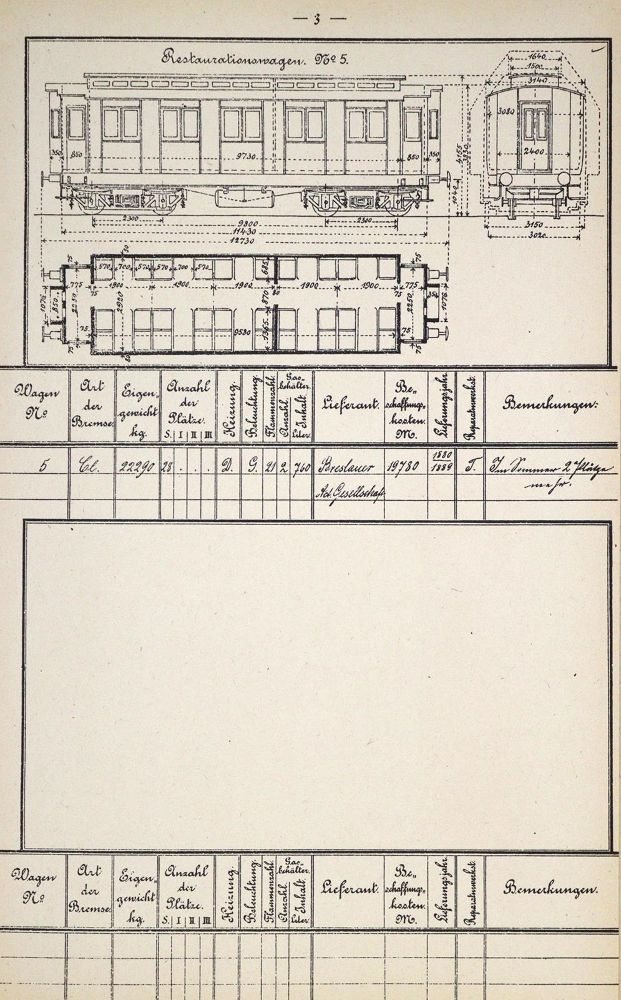 — 3 —
Restaurationswagen. No 5.
1640
1500
3140
3080
2400
350 850 9730 850 350
4155
3930
1040
2300 9800 2300
11430
12730
3150
3020
75 570 700 570 700 570 685 75
775 1900 1900 1900 1900 1900 775
1076 850 2250 75 2920 870 75 2250 850 1076
9580 1365
75 75
Wagen No
Art der Bremse
Eigengewicht kg.
Anzahl der Plätze. S. I II III
Heizung.
Beleuchtung.
Flammenzahl.
Gasbehälter. Anzahl. Inhalt Liter
Lieferant.
Beschaffungskosten. M.
Lieferungsjahr.
Reparaturwerkst.
Bemerkungen:
5 Cl. 22290 28 . . . D. G. 21 2 760 Breslauer 19780 1880 T. Im Sommer 2 Plätze
Act. Gesellschaft 1889 mehr.
Wagen No
Art der Bremse
Eigengewicht kg.
Anzahl der Plätze. S. I II III
Heizung.
Beleuchtung.
Flammenzahl.
Gasbehälter. Anzahl. Inhalt Liter
Lieferant.
Beschaffungskosten. M.
Lieferungsjahr.
Reparaturwerkst.
Bemerkungen.